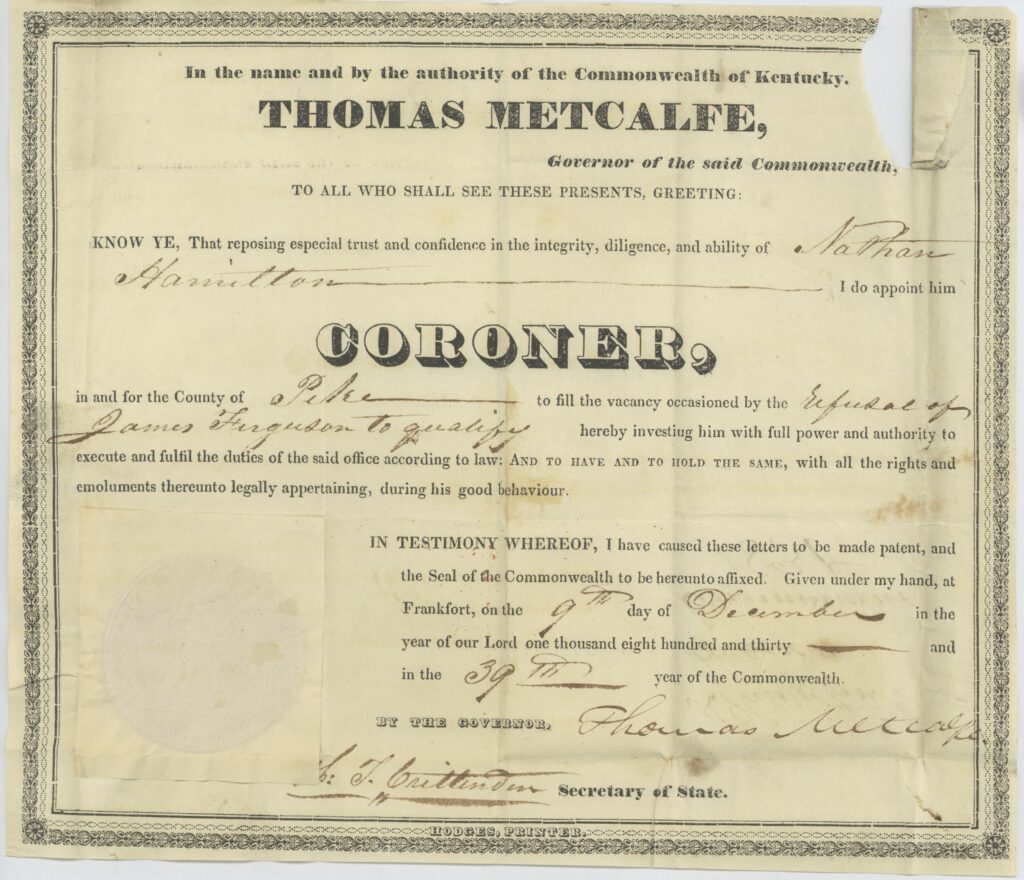 In the name and by the authority of the Commonwealth of Kentucky.
THOMAS METCALFE,
Governor of the said Commonwealth,
TO ALL WHO SHALL SEE THESE PRESENTS, GREETING:
KNOW YE, That reposing especial trust and confidence in the integrity, diligence, and ability of Nathan
Hamilton I do appoint him
CORONER,
in and for the County of Pike to fill the vacancy occasioned by the refusal of
James Ferguson to qualify hereby investing him with full power and authority to
execute and fulfil the duties of the said office according to law: AND TO HAVE AND TO HOLD THE SAME, with all the rights and
emoluments thereunto legally appertaining, during his good behaviour.
IN TESTIMONY WHEREOF, I have caused these letters to be made patent, and
the Seal of the Commonwealth to be hereunto affixed. Given under my hand, at
Frankfort, on the 9th day of December in the
year of our Lord one thousand eight hundred and thirty and
in the 39th year of the Commonwealth.
BY THE GOVERNOR, Thomas Metcalfe
T. Crittenden Secretary of State.
HODGES, PRINTER.